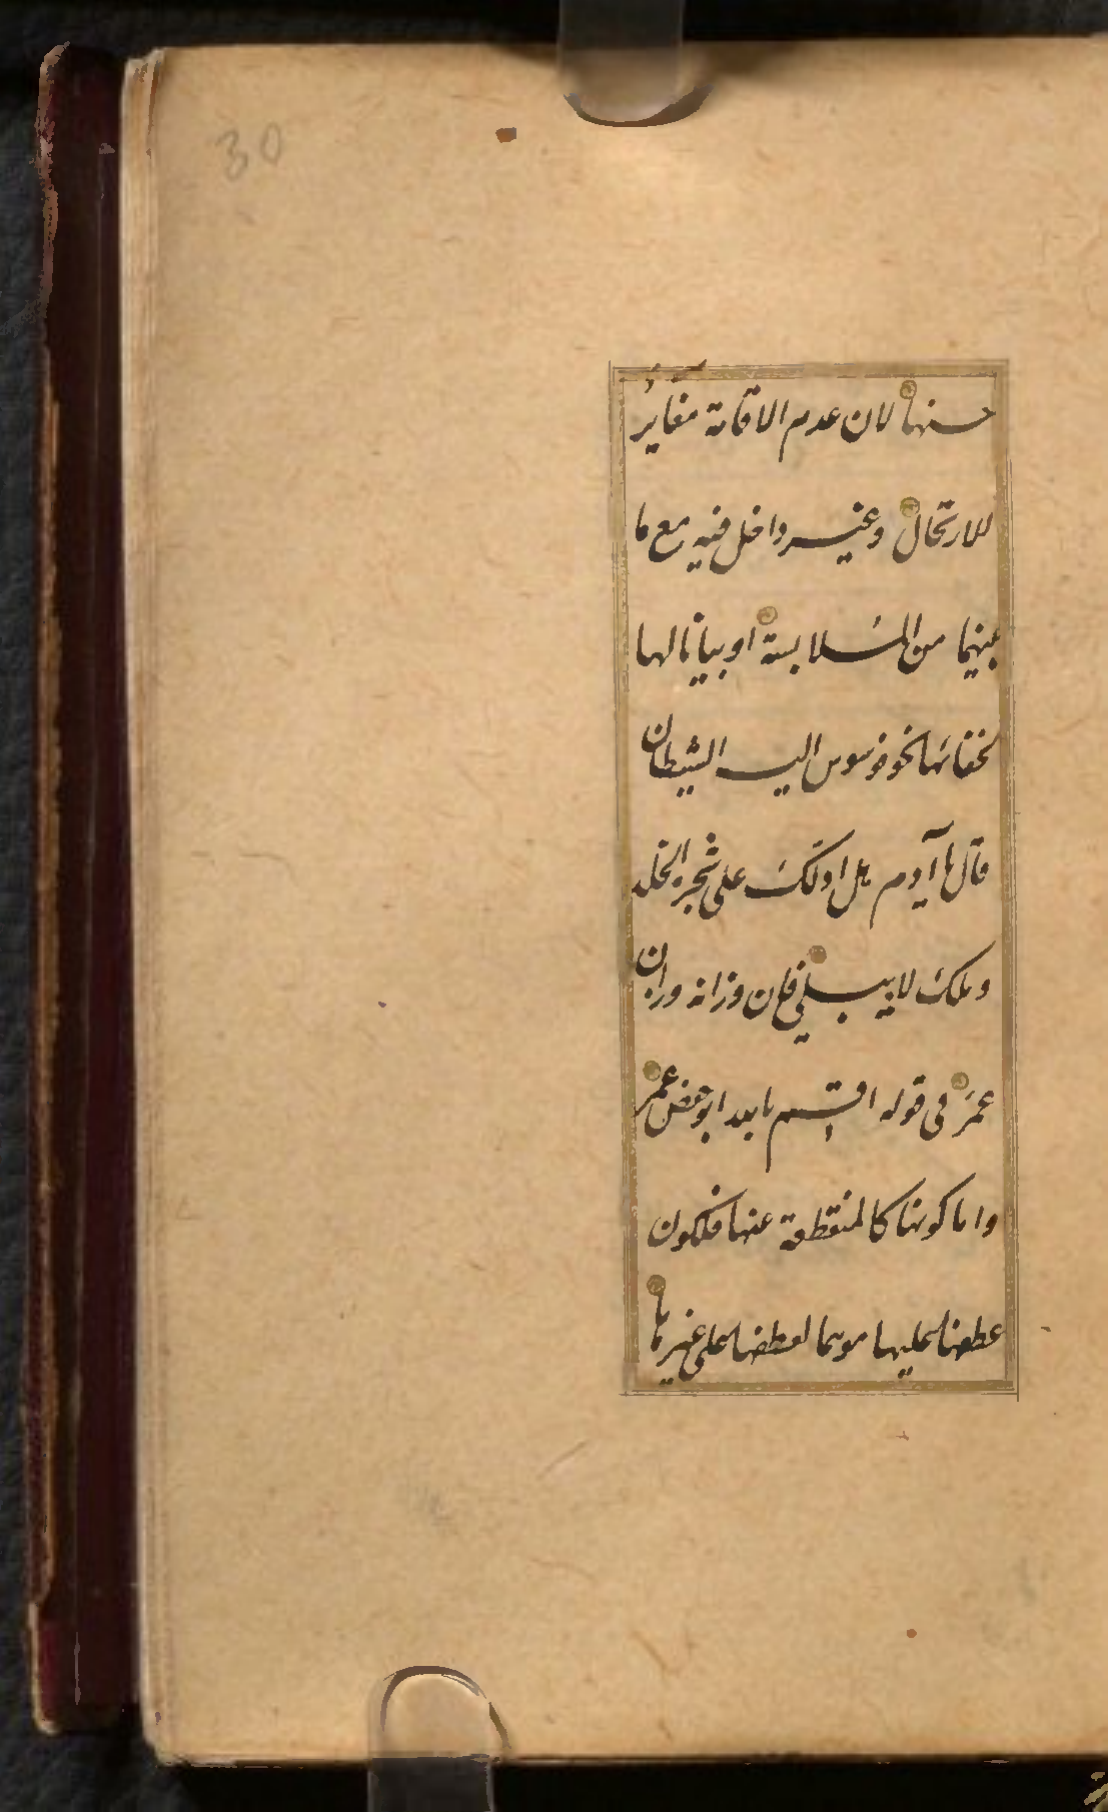 30
حسنها لان عدم الاقامة مغاير
للارتحال وغير داخل فيه مع ما
بينهما من الملابسة او بيانا لها
لخفائها نحو فوسوس اليه الشيطان
قال يا آدم هل ادلك على شجرة الخلد
وملك لا يبلى فان وزانه وزان
عمر في قوله اقسم بالله ابو حفص عمر
واما كونها كالمنقطعة عنها فلكون
عطفها عليها موهما لعطفها على غيرها